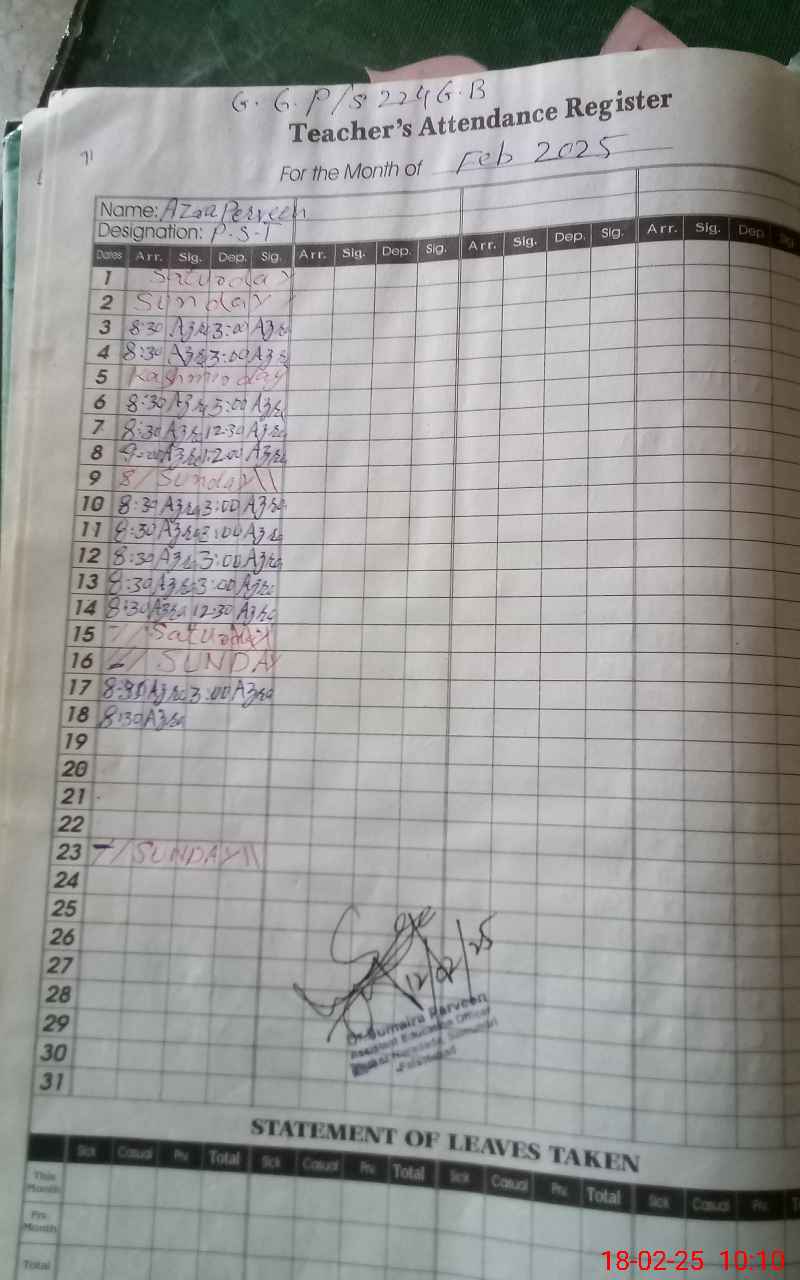 G. G. P/S 224 G.B
Teacher's Attendance Register
For the Month of Feb 2025
Name: Azra Perveen
Designation: P.S.T
Dates Arr. Sig. Dep. Sig. Arr. Sig. Dep. Sig. Arr. Sig. Dep. Sig. Arr. Sig. Dep. Sig.
1 Saturday
2 Sunday
3 8:30 Azra 3:00 Azra
4 8:30 Azra 3:00 Azra
5 Kashmir day
6 8:30 Azra 3:00 Azra
7 8:30 Azra 12:30 Azra
8 9:00 Azra Azra
9 8/ Sunday \\
10 8:30 Azra 3:00 Azra
11 8:30 Azra 3:00 Azra
12 8:30 Azra 3:00 Azra
13 8:30 Azra 3:00 Azra
14 8:30 Azra 12:30 Azra
15 7/ Saturday
16 SUNDAY
17 8:30 Azra 3:00 Azra
18 8:30 Azra
19
20
21
22
23 7/ SUNDAY \\
24
25
26
27
28
29
30
31
12/02/25
Dr. Sumaira Parveen
Assistant Education Officer
Faisalabad
STATEMENT OF LEAVES TAKEN
Sick Casual Prv. Total Sick Casual Prv. Total Sick Casual Prv. Total Sick Casual Prv.
This Month
Prv. Month
Total
18-02-25 10:10